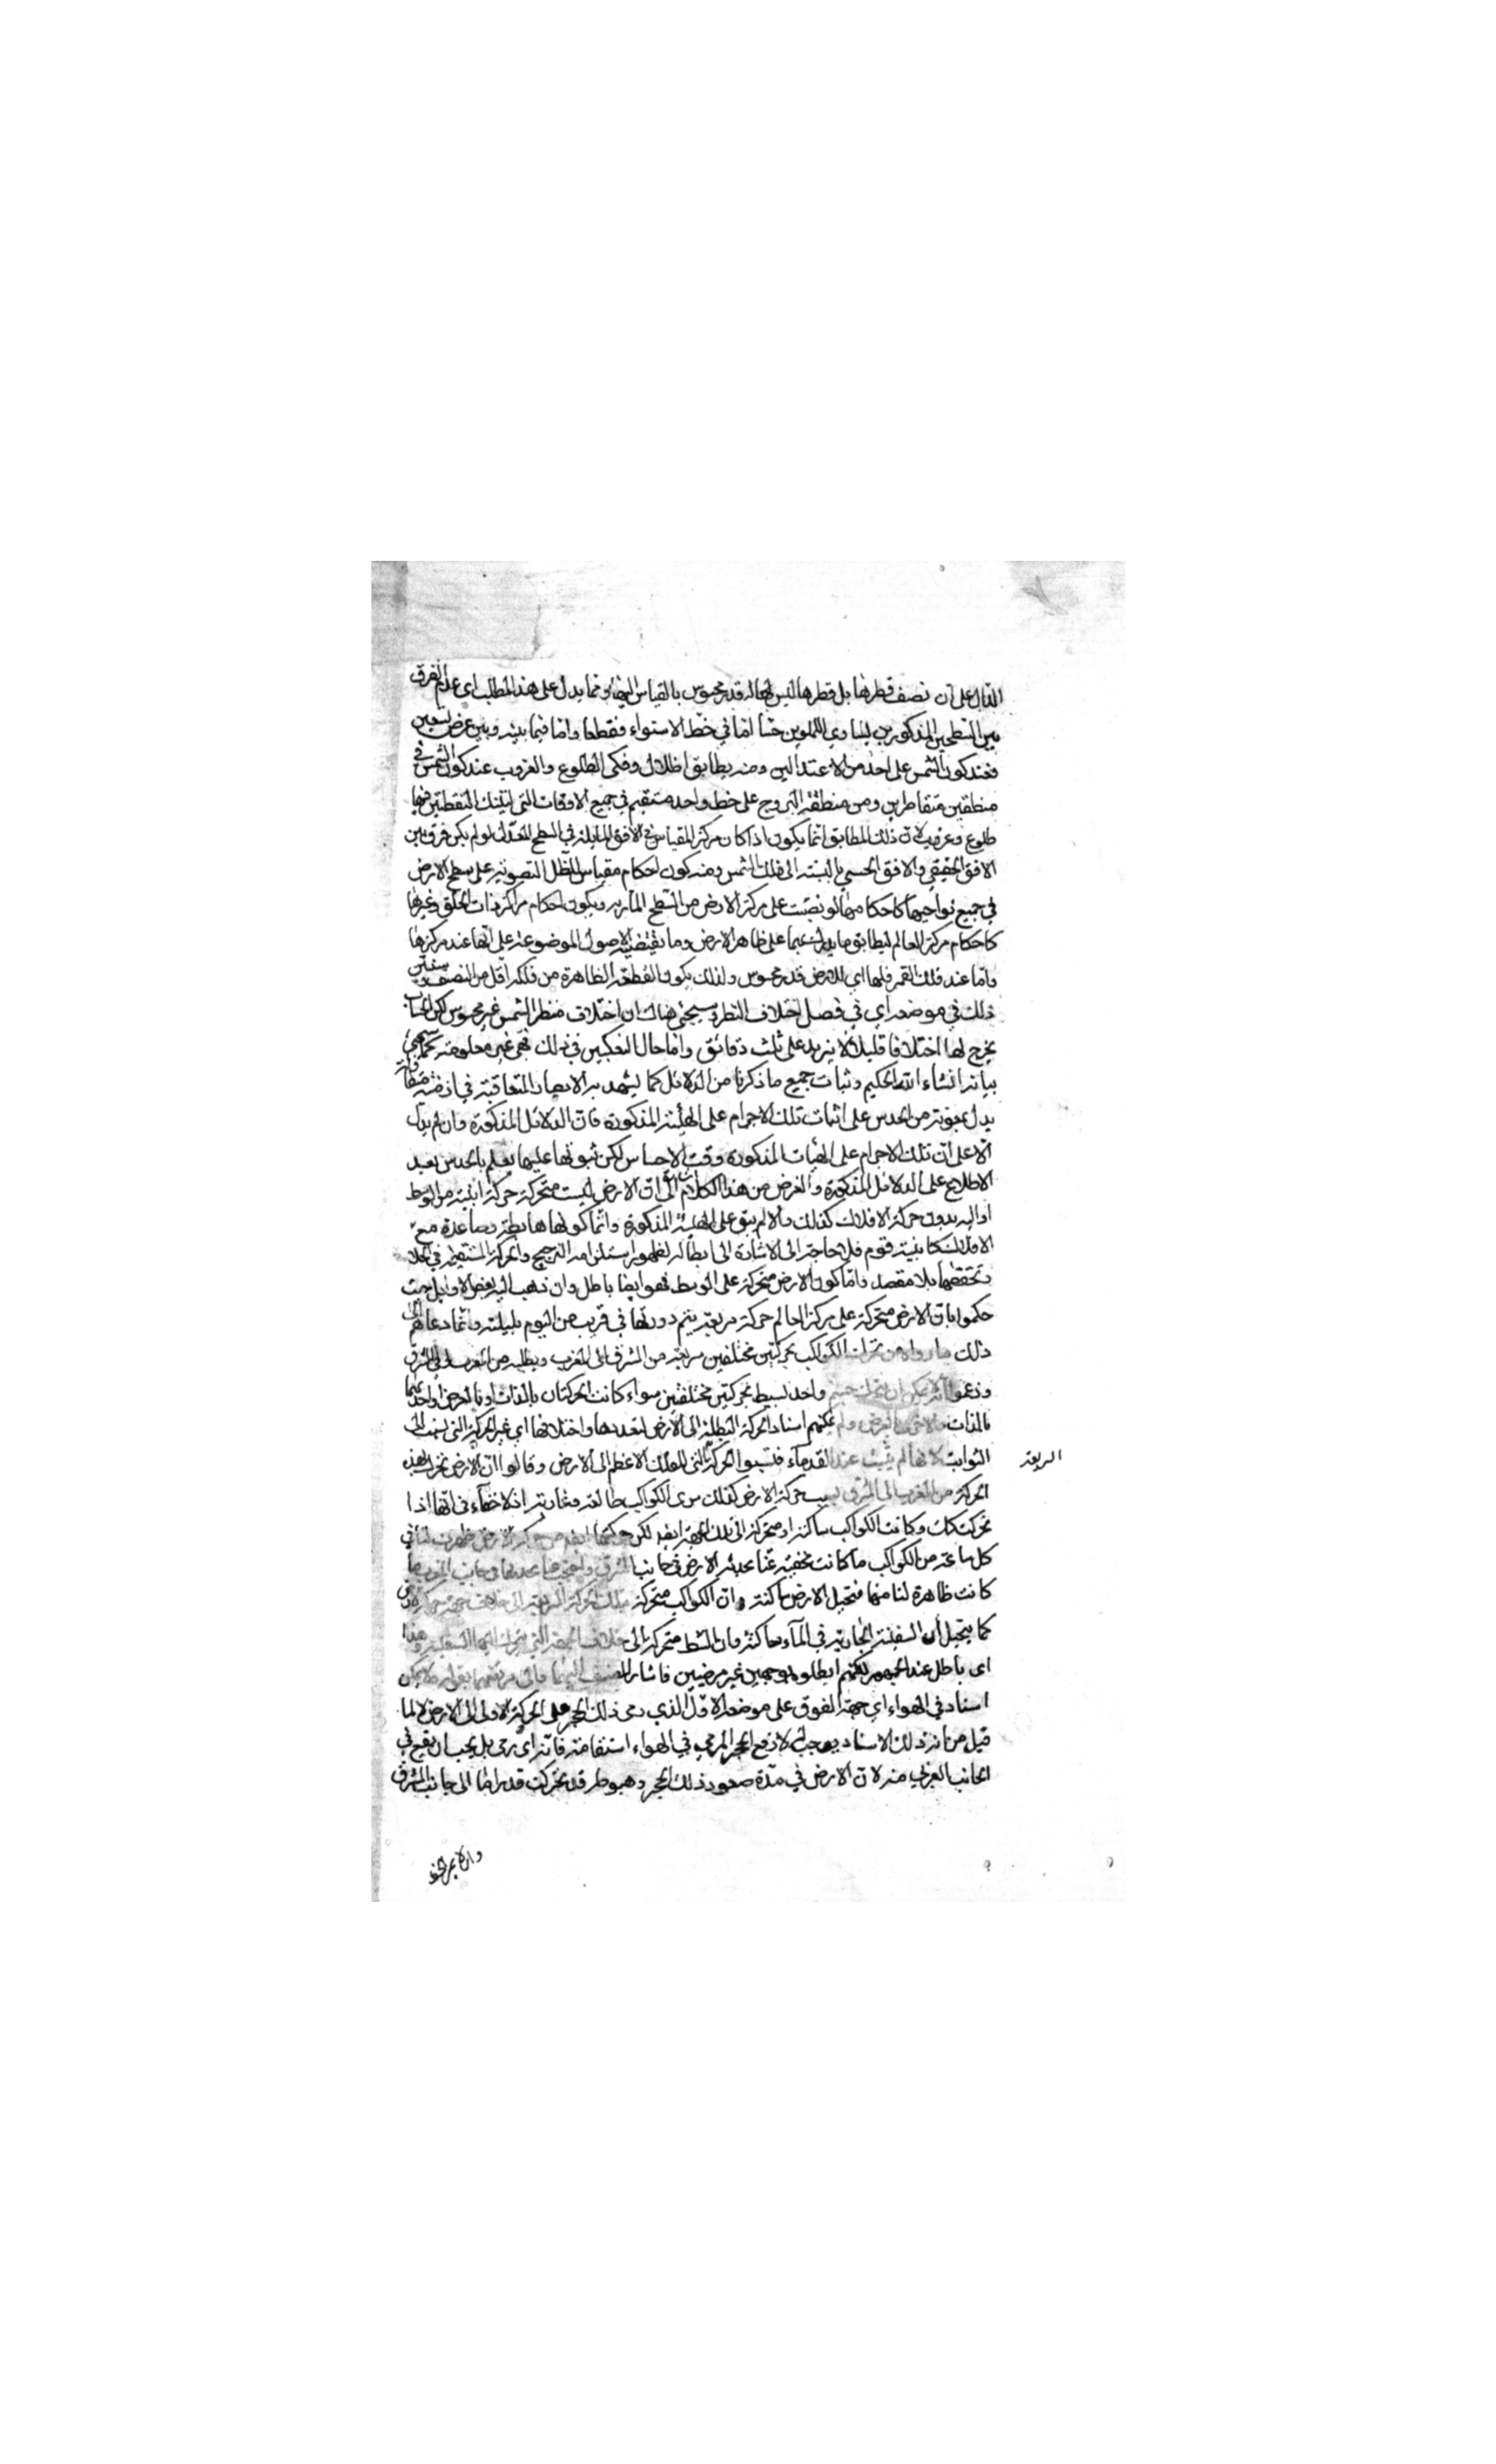 الدال على ان نصف قطرها بل قطرها ليس لها له قدر محسوس بالقياس اليها ومما يدل على هذا المطلب اى عدم الفرق
بين السطحين المذكورين تساوي الملوين حسا اما في خط الاستواء فقطعا واما فيما بينه وبين عرض تسعين
فعند كون الشمس على احد من الاعتدالين ومنه يطابق اظلال وفكى الطلوع والغروب عند كون الشمس في
منطقتين متقاطرين ومن منطقة البروج على خط واحد مستقيم في جميع الاوقات التى لتينك النقطتين فيها
طلوع وغروب لان ذلك المطابق انما يكون اذا كان مركز المقياس في الافق المايلة في السطح المعدل لو لم يكن فرق بين
الافق الحقيقي والافق الحسي بالنسبة الى فلك الشمس ومنه كون احكام مقياس الظل المنصوبة على سطح الارض
في جميع نواحيها كاحكامها لو نصبت على مركز الارض من السطح المار به ويكون احكام مراكز ذات الحلق وغيرها
كاحكام مركز العالم ليطابق ما يدرك بها على ظاهر الارض وما يقتضيه الاصول الموضوعة على انها عند مركزها
واما عند فلك القمر فلها اي للارض قدر محسوس ولذلك يكون القطعة الظاهرة من فلكه اقل من النصف وسنبين
ذلك في موضعه اي في فصل اختلاف المنظر وسيجئ هناك ان اختلاف منظر الشمس غير محسوس لكن الحساب
يخرج لها اختلافا قليلا لا يزيد على ثلث دقائق واما حال الكوكبين في ذلك فهى غير معلومة كما سيجئ
بيانه انشاء الله الحكيم وثبات جميع ما ذكرنا من الدلائل كما يشهد به الارصاد المتعاقبة في ازمنة متفاوتة
يدل بمعونة من الحدس على اثبات تلك الاجرام على الهيئة المذكورة فان الدلائل المذكورة وان لم يدل
الا على ان تلك الاجرام على الهيئات المذكورة وقت الاحساس لكن ثبوتها عليها يعلم بالحدس بعد
الاطلاع على الدلائل المذكورة والغرض من هذا الكلام ان الارض ليست متحركة حركة اينية من الوسط
او اليه بدون حركة الافلاك كذلك والا لم يبق على الهيئة المذكورة واما كونها هابطة وصاعدة مع
الافلاك فلا حاجة الى الاشارة الى ابطاله لظهور استلزامه الترجيح والحركة المستقيمة في الخلا
وتحققها بلا مقصد واما كون الارض متحركة على الوسط فهو ايضا باطل وان ذهب اليه بعض الاوايل حيث
حكموا بان الارض متحركة على مركز العالم حركة سريعة يتم دورتها في قريب من اليوم بليلته وانما دعاهم الى
ذلك ما رواه من تحرك الكواكب بحركتين مختلفتين سريعة من المشرق الى المغرب وبطيئة من المغرب الى المشرق
وزعموا انه لا يمكن ان يتحرك جسم واحد بسيط بحركتين مختلفتين سواء كانت الحركتان بالذات او بالعرض او احدهما
بالذات والاخرى بالعرض ولم يمكنهم اسناد الحركة البطيئة الى الارض لتعددها واختلافها اي غير الحركة التى نسبت الى
الثوابت لانها لم يثبت عند القدماء فنسبوا الحركة التى للفلك الاعظم الى الارض وقالوا ان الارض تتحرك بهذه
السريعة
الحركة من المغرب الى المشرق وبسبب حركة الارض كذلك نرى الكواكب طالعة وغاربة اذ لا خفاء في انها اذا
تحركت كذلك وكانت الكواكب ساكنة او متحركة الى تلك الجهة ايضا لكن حركتها ابطا من حركة الارض ظهرت لنا في
كل ساعة من الكواكب ما كانت مخفية عنا بحدبة الارض في جانب المشرق واختفى عنا بحدبتها في جانب المغرب ما
كانت ظاهرة لنا منها فنتخيل الارض ساكنة وان الكواكب متحركة بتلك الحركة السريعة الى خلاف جهة حركة الارض
كما يتخيل ان السفينة الجارية في الماء ساكنة وان الشط متحركة الى خلاف الجهة التى يتحرك اليها السفينة وهذا
اى باطل عند الجمهور لكنهم ابطلوه بوجهين غير مرضيين فاشار المصنف اليهما والى تزييفهما بقوله ولا يمكن
اسناد في الهواء اي جهة الفوق على موضعه الاول الذي رمى ذلك الحجر على الحركة الاولى الى الارض لا لما
قيل من ان ذلك الاسناد يوجب ان لا يقع الحجر المرمي في الهواء استقامة فانه اى رمى بل يجب ان يقع في
الجانب الغربي منه لان الارض في مدة صعود ذلك الحجر وهبوطه قد تحركت قدرا ما الى جانب المشرق